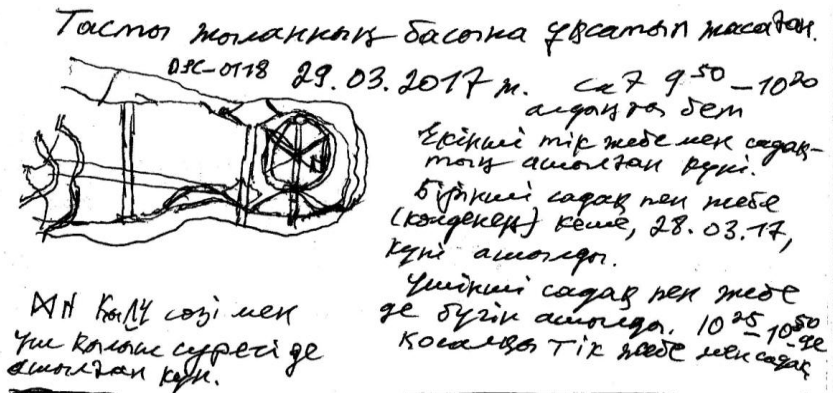 Тасты жыланның басына ұқсатып жасаған.
DSC-0118 29.03.2017 ж. са7 9⁵⁰ – 10²⁰
алдыңғы бет
Екінші тік жебе мен садақ-
тың ашылған күні.
Бірінші садақ пен жебе
(көлденең) кеше, 28.03.17,
күні ашылды.
Үшінші садақ пен жебе
де бүгін ашылды. 10²⁵ – 10⁵⁰ де
қосалқы тік жебе мен садақ
сөзі мен
Үш қылыш суреті де
ашылған күн.